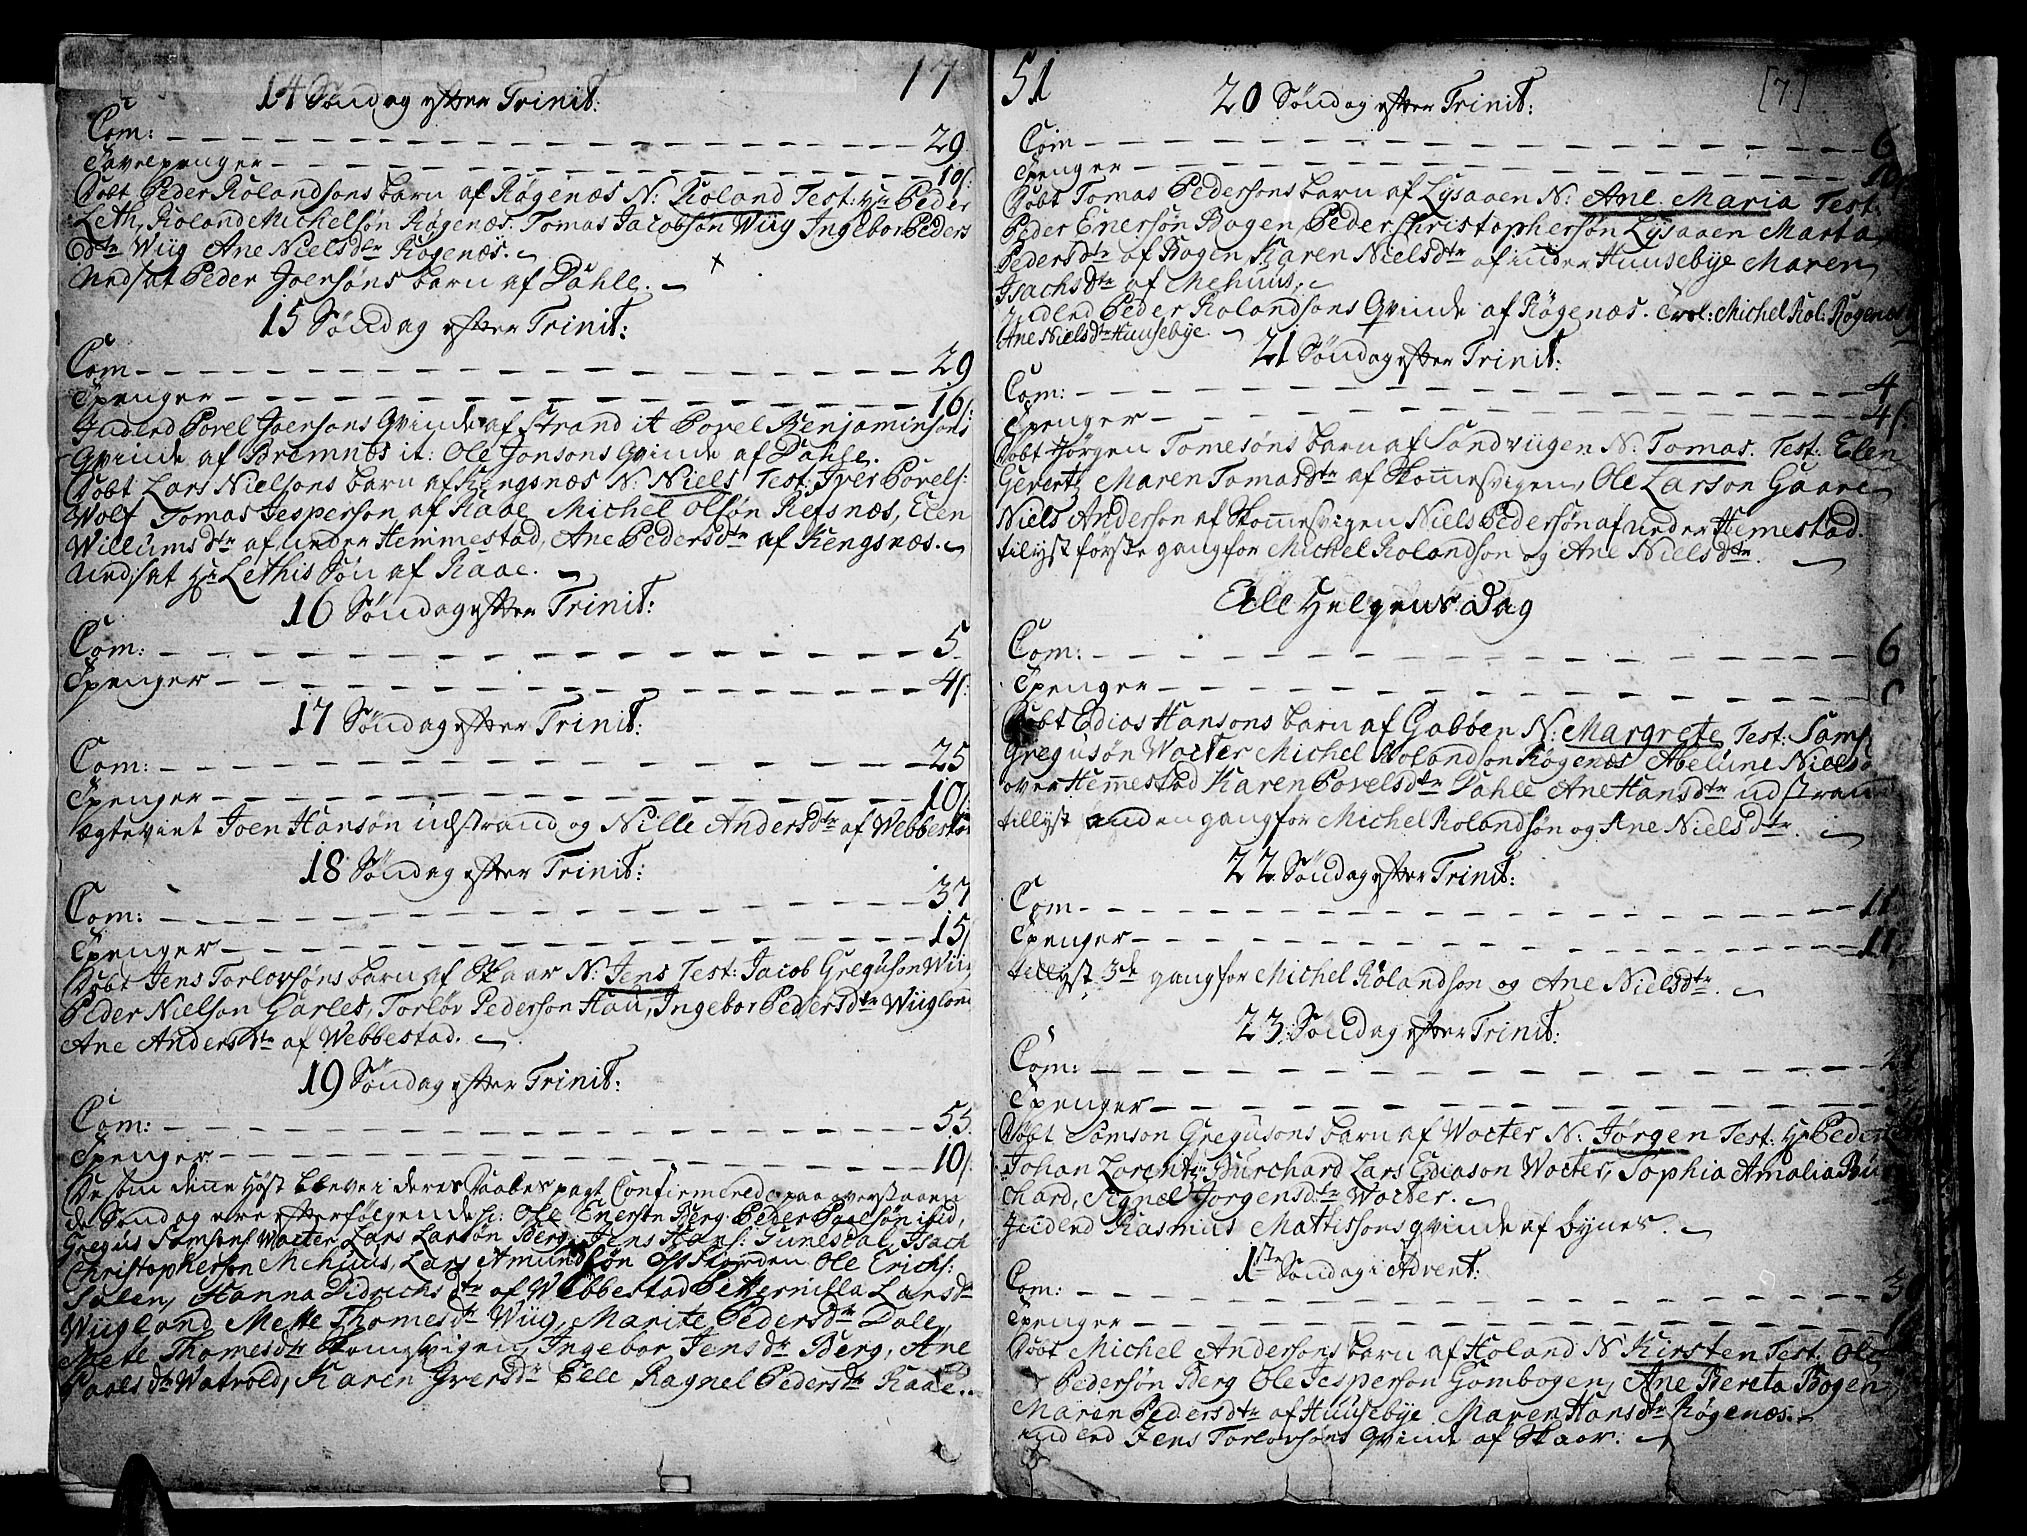 17
14 Søndag efter Trinit:
Com: 29
Tavlepenger 10s:
Døbt Peder Rolandsøns barn af Røgenæs N: Roland Test: Hr Peder
Leth, Roland Michelsøn Røgenæs. Tomas Jacobsøn Wiig Ingebor Peders
dtr Wiig Ane Nielsdtr Røgenæs.
Undsat Peder Joensøns barn af Dahle.
15 Søndag efter Trinit:
Com 29
Tpenger 16s:
Inderd Povel Joensøns Qvinde af Strand it Povel Benjaminsøns
Qvinde af Bremnes it: Ole Jonsøns Qvinde af Dahle.
Døbt Lars Nielsøns barn af Kengsnæs N: Niels Test: Iver Povels:
Wolf Tomas Jesperson af Raae Michel Olsøn Refsnæs, Elen
Willumsdtr af under Hemmestad, Ane Pedersdtr af Kengsnæs.
Undsat Hr Lethis Søn af Raae.
16 Søndag efter Trinit:
Com: 5
Tpenger 4s:
17 Søndag efter Trinit:
Com: 25
Tpenger 10s:
Ægteviet Joen Hansøn udstrand og Nille Andersdtr af Webbestad
18 Søndag efter Trinit:
Com: 37
Tpenger 15s
Døbt Jens Torlovsøns barn af Skaar N: Jens Test: Jacob Greguson Wiig
Peder Nielson Garles, Torlov Pederson Hau, Ingebor Pedersdtr Wiiglond
Ane Andersdtr af Webbestad.
19 Søndag efter Trinit:
Com: 55
Tpenger 10s
De som denne Høst bleve i deres Daabes pagt Confirmerede paa overstaaen
de Søndag ere efterfølgende: Ole Enersøn Berg. Peder Paalsøn ibid,
Gregus Samsons Wocter Lars Larsøn Berg, Jens Hans: Gunesdal, Isach
Christophersøn Mehuus, Lars Amundsøn Ossfiorden Ole Erichs:
Salen, Hanna Didrichsdtr af Webbestad Petternilla Larsdtr
Wiiglond Mette Thomesdtr Wiig, Marite Pedersdtr Dale,
Mete Thomesdtr Skomesvigen, Ingebor Jensdtr Berg, Ane
Paalsdtr Watvold, Karen Iversdtr Elle Ragnel Pedersdtr Raae.
51
[7]
20 Søndag efter Trinit:
Com 6
Tpenger 10
Døbt Tomas Pedersøns barn af Lysaaen N: Ane Maria Test.
Peder Enersøn Bogen Peder Christophersøn Lysaaen Marta
Pedersdtr af Bogen Karen Nielsdtr af under Huusebye Maren
Isachsdtr af Mehuus.
Inderd Peder Rolandsons Qvinde af Røgenæs. Trol: Michel Rol: Røgenæs
Ane Nielsdtr Huusebye.
21 Søndag efter Trinit:
Com: 4
Tpenger 4s:
Døbt Jørgen Tomesøns barn af Sandviigen N: Tomas. Test: Elen
Gevertz Maren Tomasdtr af Skomesvigen, Ole Larson Gaare
Niels Anderson af Skomesvigen Niels Pedersøn af under Hemestad.
tilyst første gang for Michel Rolandson og Ane Nielsdtr.
Alle Helgens Dag
Com: 6
Tpenger
Døbt Edias Hansons barn af Gabben N: Margrete Test: Sams
Gregusøn Wocter Michel Rolandson Røgenæs Abelune Niels
over Hemestad Karen Povelsdtr Dahle Ane Hansdtr udstrand
tillyst anden gang for Michel Rolandsøn og Ane Nielsdtr.
22 Søndag efter Trinit:
Com 11
Tpenger 11
tillyst 3de gang for Michel Rolandson og Ane Nielsdtr.
23 Søndag efter Trinit:
Com:
Tpenger
Døbt Samson Gregusøns barn af Wocter N: Jørgen Test: Hr Peder
Johan Lorentz Burchard Lars Ediason Wocter, Sophia Amalia Bur
chard, Signel Jorgensdtr Wocter.
Inderd Rasmus Mathissøns qvinde af bynes.
1ste Søndag i Advent:
Com: 30
Tpenger
Døbt Michel Andersøns barn af Holand N Kirsten Test. Ole
Pedersøn Berg Ole Jesperson Gombogen, Ane Bereta Bogen
Maren Pedersdtr af Huusebye Maren Hansdtr Røgenæs.
inderd Jens Torlovsøns qvinde af Skaar.